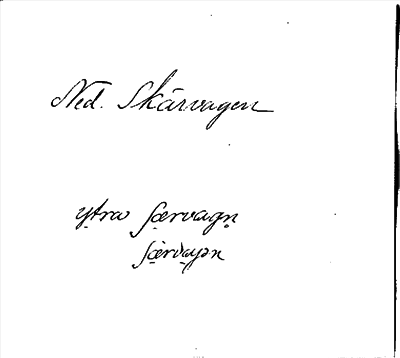 Ned. Skärvagen
ytra særvagn
særvagən